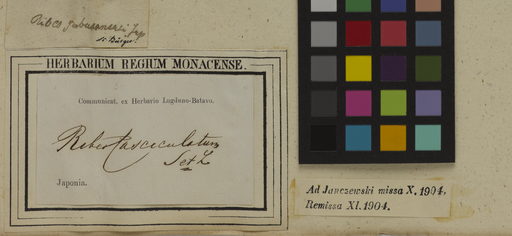 Ribes
HERBARIUM REGIUM MONACENSE.
Communicat. ex Herbario Lugduno-Batavo.
Ribes fasciculatum
S et Z
Japonia.
Ad Janczewski missa X. 1904.
Remissa XI. 1904.